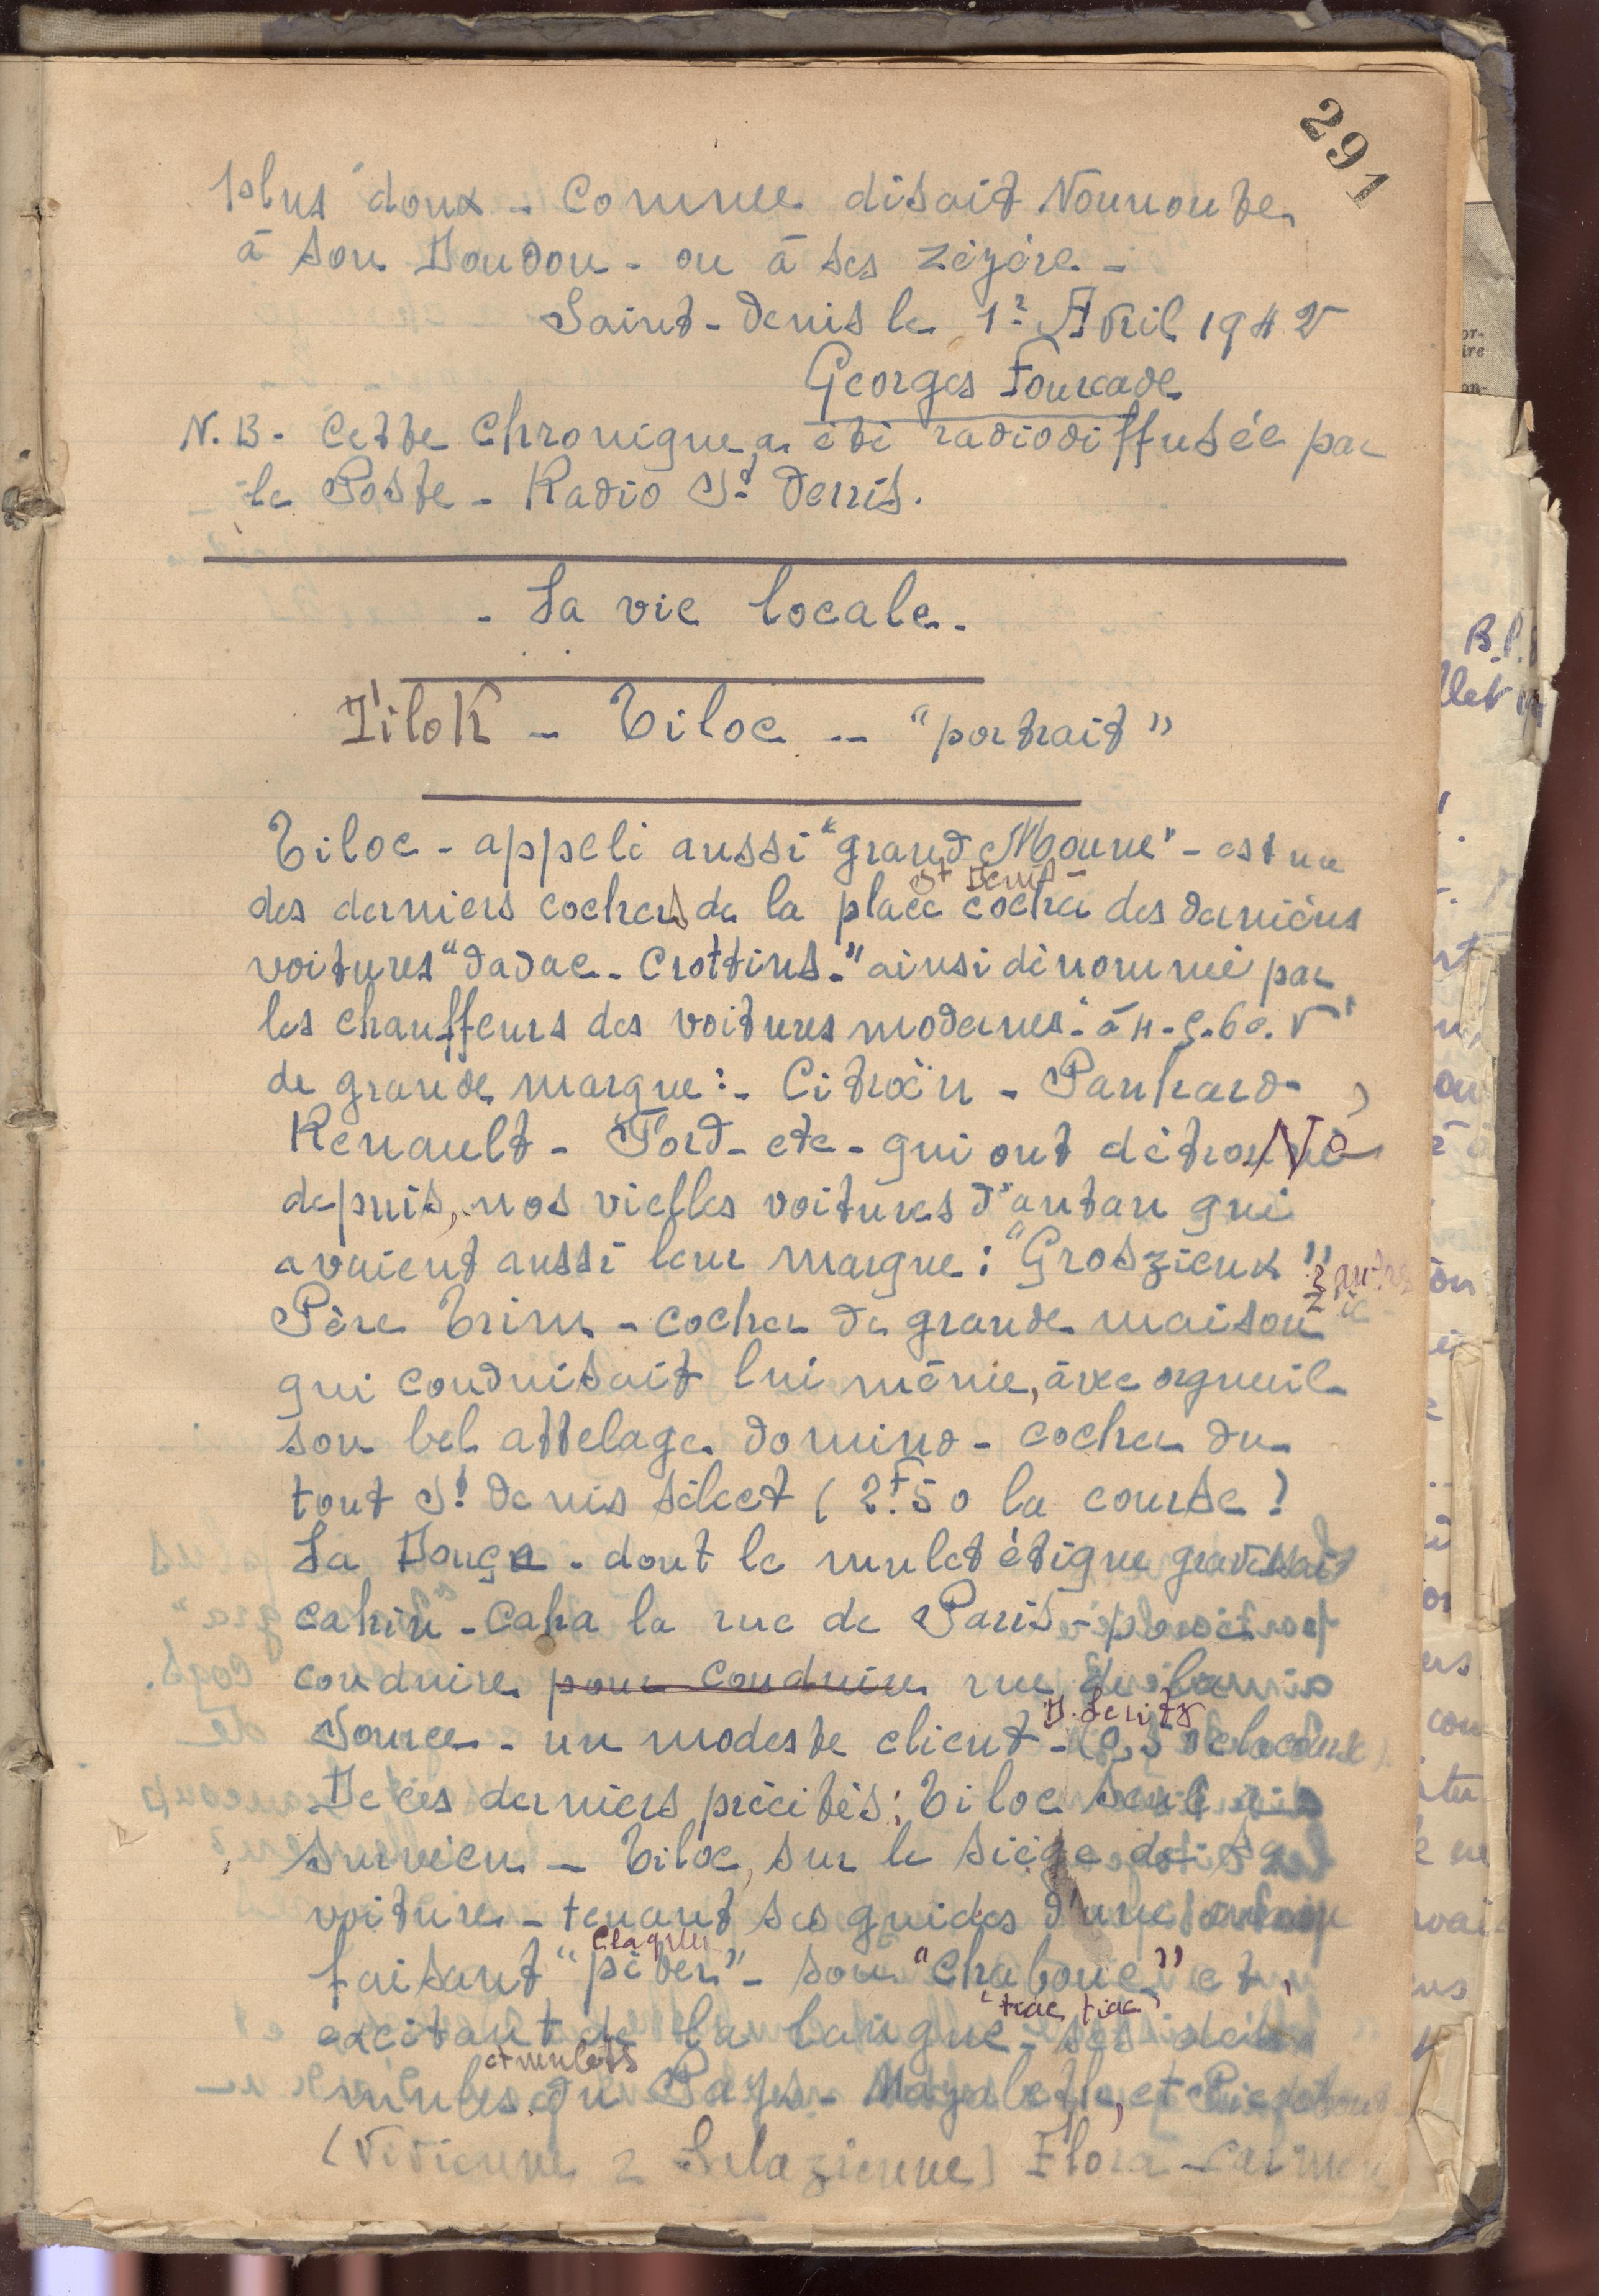 291
Plus doux - Comme disait Nounoute
à son Doudou - ou à ses zézère -
Saint-Denis le 1er Avril 1942
Georges Fourcade
N.B - Cette Chronique a été radiodiffusée par
le Poste - Radio St Denis.
- La vie locale -
Tilok - Tiloc -- "portrait"
Tiloc - appelé aussi "grand Moune" - est un
St Denis
des derniers cochers de la place cocher des dernières
voitures "dadac - Crottins -" ainsi dénommé par
les chauffeurs des voitures modernes - à 4-5-6 c.v
de grande marque : - Citroën - Panhard -
Renault - Ford - etc - qui ont détroNé
depuis, nos vielles voitures d'antan qui
avaient aussi leur marque : "Groszieux"
Père Trim - cocher de grande maison
qui conduisait lui même, avec orgueil
son bel attelage domino - cocher du
tout St Denis sélect ( 2F.50 la course )
La Douça - dont le mulet étique gravissait
cahin - caha la rue de Paris - pour
conduire pour conduire rue de la
Source - un modeste client - ( la course )
De ces derniers précités ; Tiloc seul a
survécu - Tiloc, sur le siège de sa
voiture - tenant ses guides d'une
claquer
faisant "péter" - son "chabouc" et,
"trac trac"
excitant de la langue - ses deux
et mulets
mules du Pays - et
Flora - Carmen